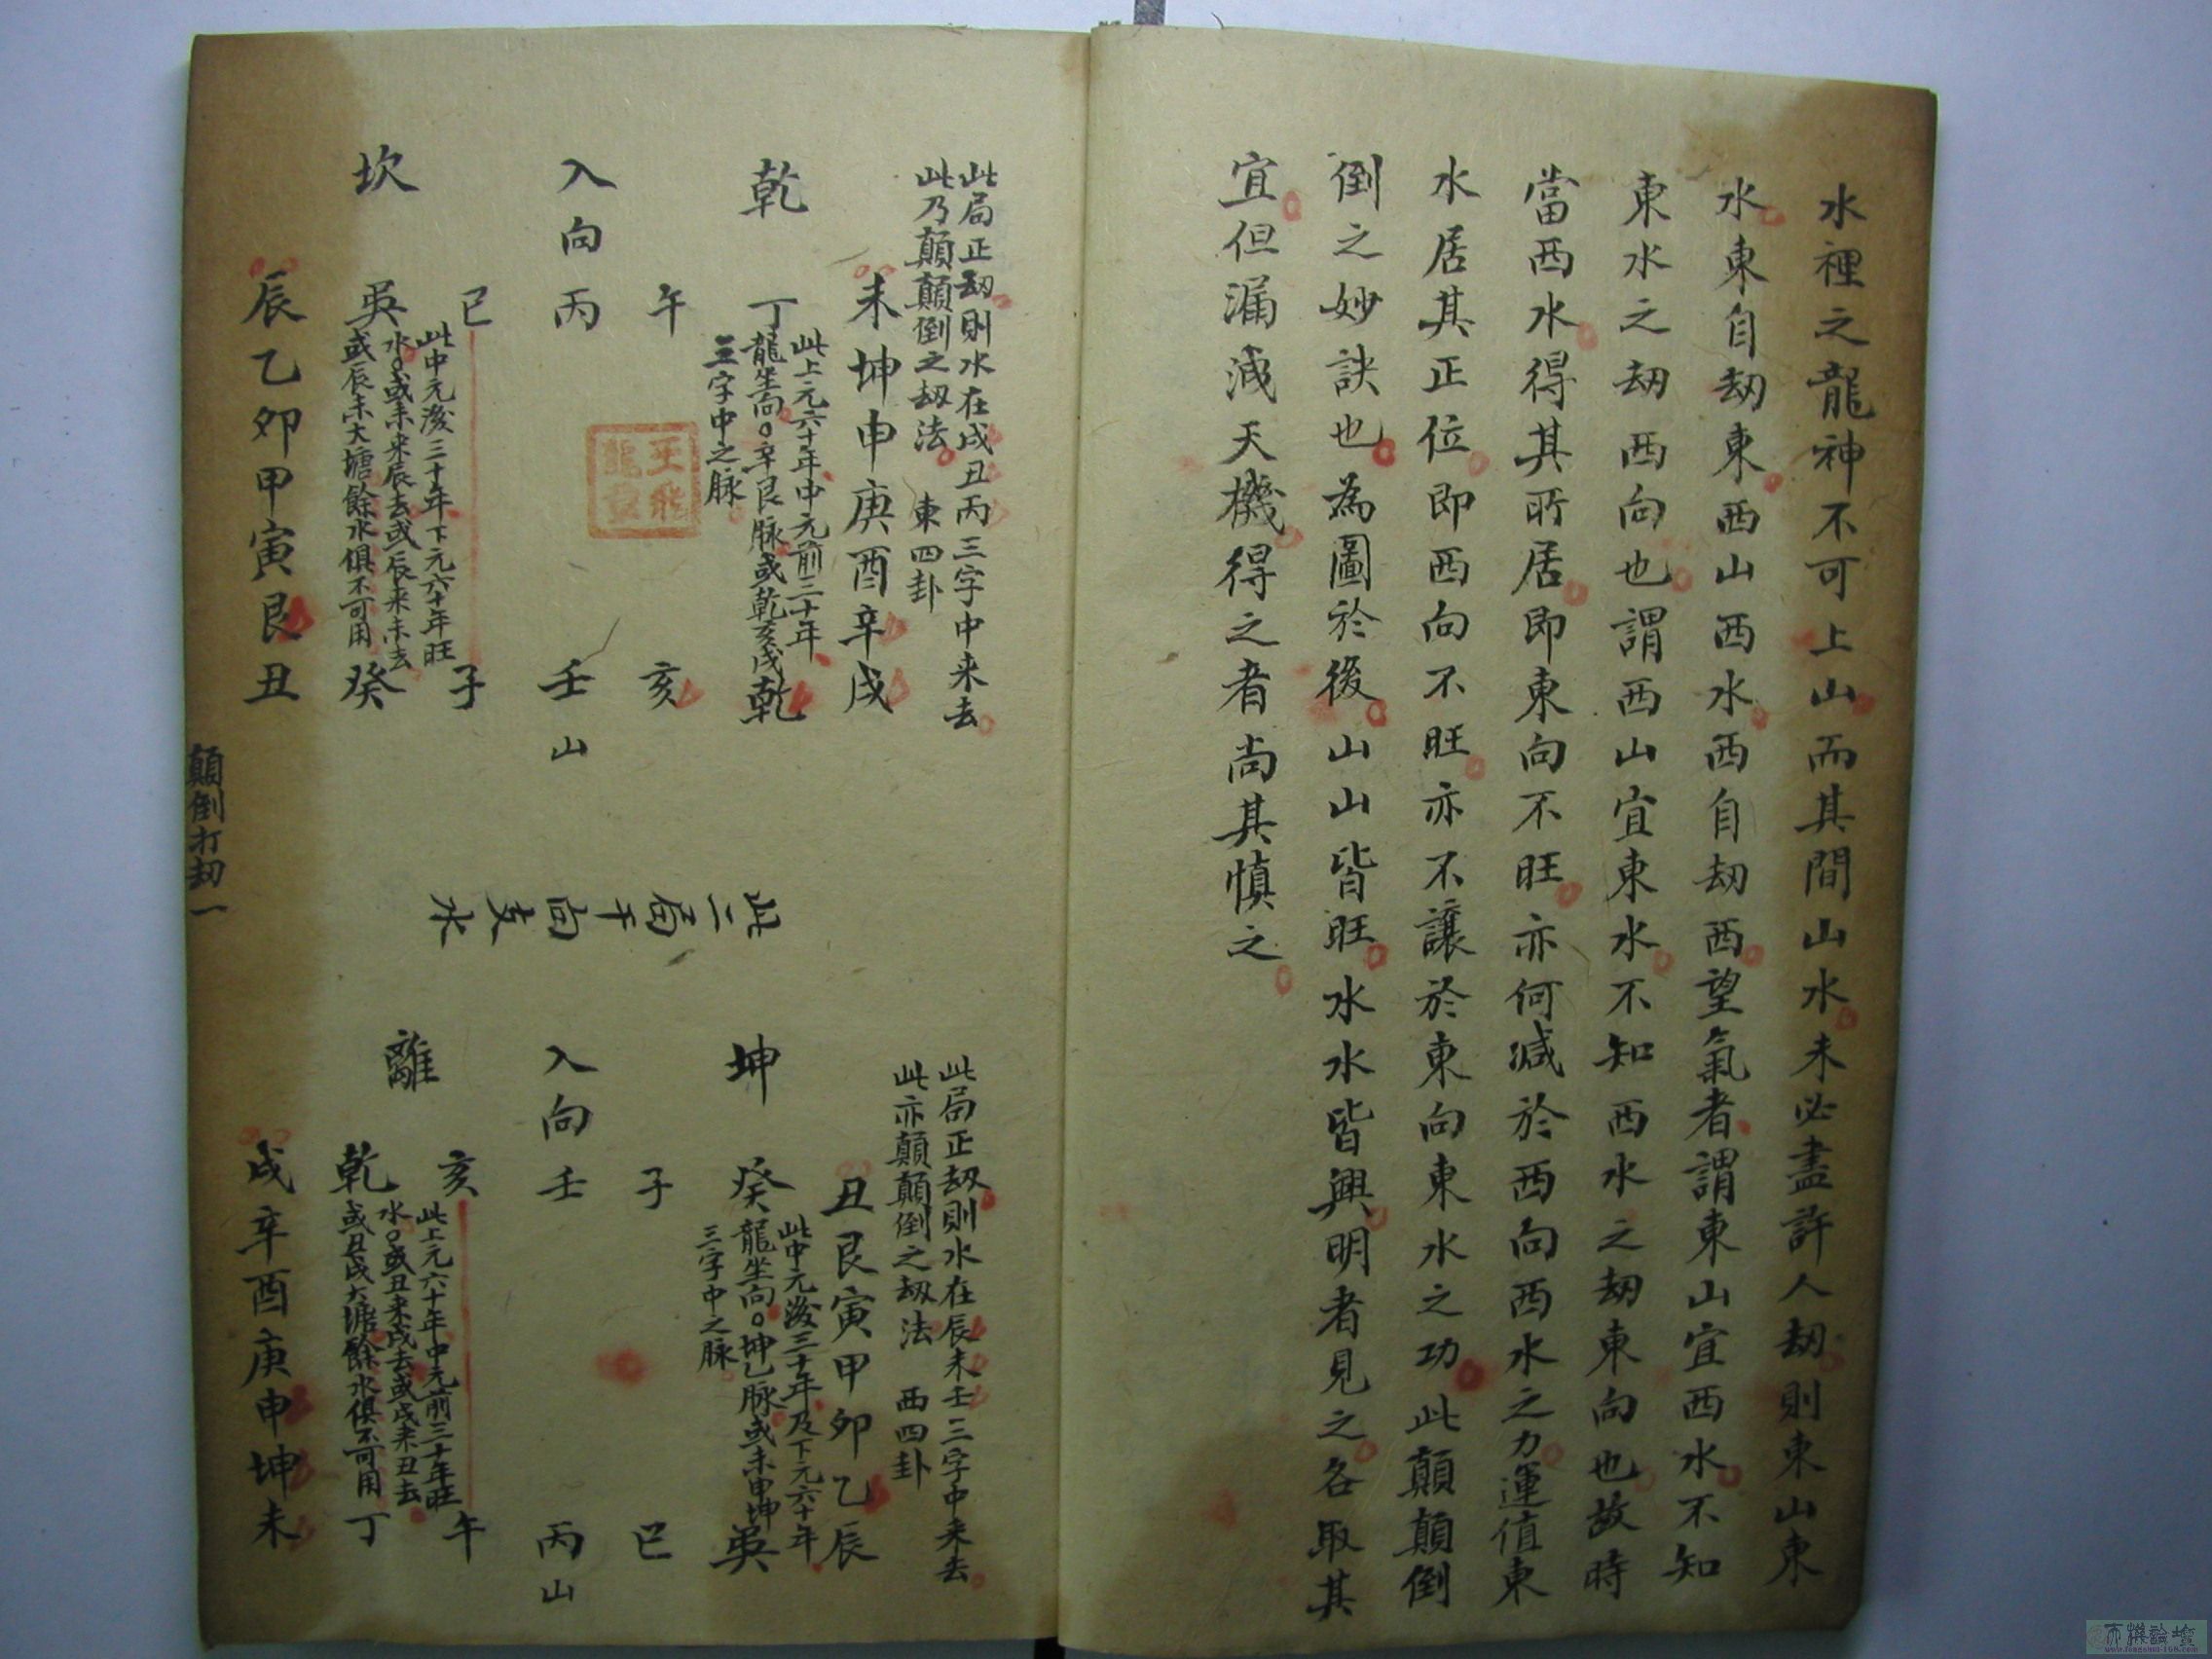 水裡之龍神不可上山而其間山水未必盡許人劫則東山東
水東自劫東西山西水西自劫西望氣者謂東山宜西水不知
東水之劫西向也謂西山宜東水不知西水之劫東向也故時
當西水得其所居即東向不旺亦何減於西向西水之力運值東
水居其正位即西向不旺亦不讓於東向東水之功此顛顛倒
倒之妙訣也為圖於後山山皆旺水水皆興明者見之各取其
宜但漏洩天機得之者尚其慎之
此局正劫則水在戌丑丙三字中来去
此乃顛顛倒之劫法 東四卦
未坤申庚酉辛戌
乾
丁
此上元六十年中元前三十年
龍坐向辛艮脉或乾亥戌
三字中之脉
乾
午
亥
入向丙
壬山
巳
子
坎
巽
此中元後三十年下元六十年旺
水或未来辰去或辰来未去
或辰未大塘餘水俱不可用
癸
辰乙卯甲寅艮丑
顛倒打劫一
此二局干向支水
此局正劫則水在辰未壬三字中来去
此亦顛顛倒之劫法 西四卦
丑艮寅甲卯乙辰
坤
癸
此中元後三十年及下元六十年
龍坐向坤乙脉或未申坤
三字中之脉
巽
子
巳
入向壬
丙山
亥
午
離
乾
此上元六十年中元前三十年旺
水或丑来戌去或戌来丑去
或丑戌大塘餘水俱不可用
丁
戌辛酉庚申坤未